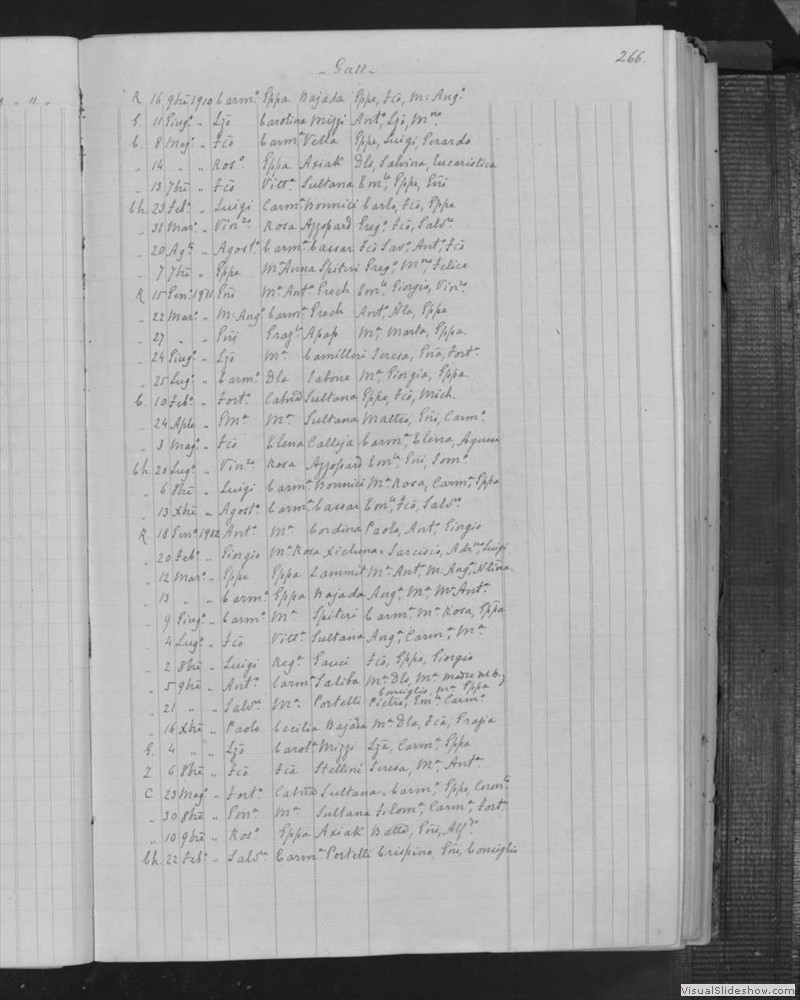 266.
Galt
R 16 9bre 1910 Carm.o Eppa Bajada Eppe, Fco, M: Ang.o
G. 11 Giug.o " Ljo Carolina Mizzi Ant.o, Ljo, M.no
C. 8 Mag.o " Fco Carm.a Vella Eppe, Luigi, Gerardo
" 14 " " Ros.o Eppa Axiak Dlo, Salvina, Eucaristica
" 13 7bre " Fco Vitt.a Sultana Em.le, Eppe, Gni
Ch. 23 Feb.o " Luigi Carm.a Bonnici Carlo, Fco, Eppe
" 31 Mar.o " Vin.zo Rosa Azzopard Greg.o, Fco, Salv.re
" 20 Ag.o " Agost.o Carm.a Cassar Fco Sav.o, Ant.o, Fco
" 7 7bre " Eppe M.a Anna Spiteri Greg.o, M.no, Felice
R 15 Gen.o 1911 Gni M.a Ant.a Grech Em.le, Giorgio, Vin.zo
" 22 Mar.o " M: Ang.o Carm.a Grech Ant.a, Nla, Eppe
" 27 " " Gni Graz.a Apap M.a, Marta, Eppa.
" 24 Giug.o " Ljo M.a Camilleri Teresa, Gna, Fort.a
" 25 Lug.o " Carm.o Dla Sabone M.a, Giorgia, Eppa.
C. 10 Feb.o " Fort.o Catna Sultana Eppe, Fco, Mich.
" 24 Aple " Em.a M.a Sultana Matteo, Gni, Carm.o
" 3 Mag.o " Fco Elena Calleja Carm.a, Elena, Agnese
Ch. 20 Lug.o " Vin.zo Rosa Azzopard Em.le, Gni, Tom.o
" 6 8bre " Luigi Carm.a Bonnici M.a Rosa, Carm.a, Eppa
" 13 Xbre " Agost.o Carm.a Cassar Em.le, Fco, Salv.re
R 18 Gen.o 1912 Ant.o M.a Cordina Paolo, Ant.o, Giorgio
" 20 Feb.o " Giorgio M.a Rosa Xicluna Tarcisio, Adr.no, Luigi
" 12 Mar.o " Eppe Eppa Zammit M.a Ant.a, M: Ang.a, Nlina
" 13 " " Carm.o Eppa Bajada Ang.a, M.a, M.a Ant.a
" 9 Giug.o " Carm.o M.a Spiteri Carm.a, M.a Rosa, Eppa
" 4 Lug.o " Fco Vitt.a Sultana Ang.a, Carm.a, M.a
" 2 8bre " Luigi Reg.a Gauci Fco, Eppe, Giorgio
" 5 9bre " Ant.o Carm.a Saliba M.a Dla, M.a Madre del b.
Consiglio, M.a Eppa
" 21 " " Salv.re M.a Portelli Pietro, Em.le, Carm.o
" 16 Xbre " Paolo Cecilia Bajada M.a Dla, Fca, Grazia
G. 4 " " Ljo Carol.a Mizzi Lja, Carm.a, Eppa
Z 6 8bre " Fco Fca Stellini Teresa, M.a, Ant.a
C 23 Mag.o " Fort.o Catna Sultana Carm.a, Eppe, Coron.a
" 30 8bre " Em.a M.a Sultana Filom.a, Carm.a, Fort.a
" 10 9bre " Ros.o Eppa Axiak Batta, Gni, Alf.do
Ch. 22 Feb.o " Salv.re Carm.a Portelli Crispino, Gni, Consiglio
VisualSlideshow.com